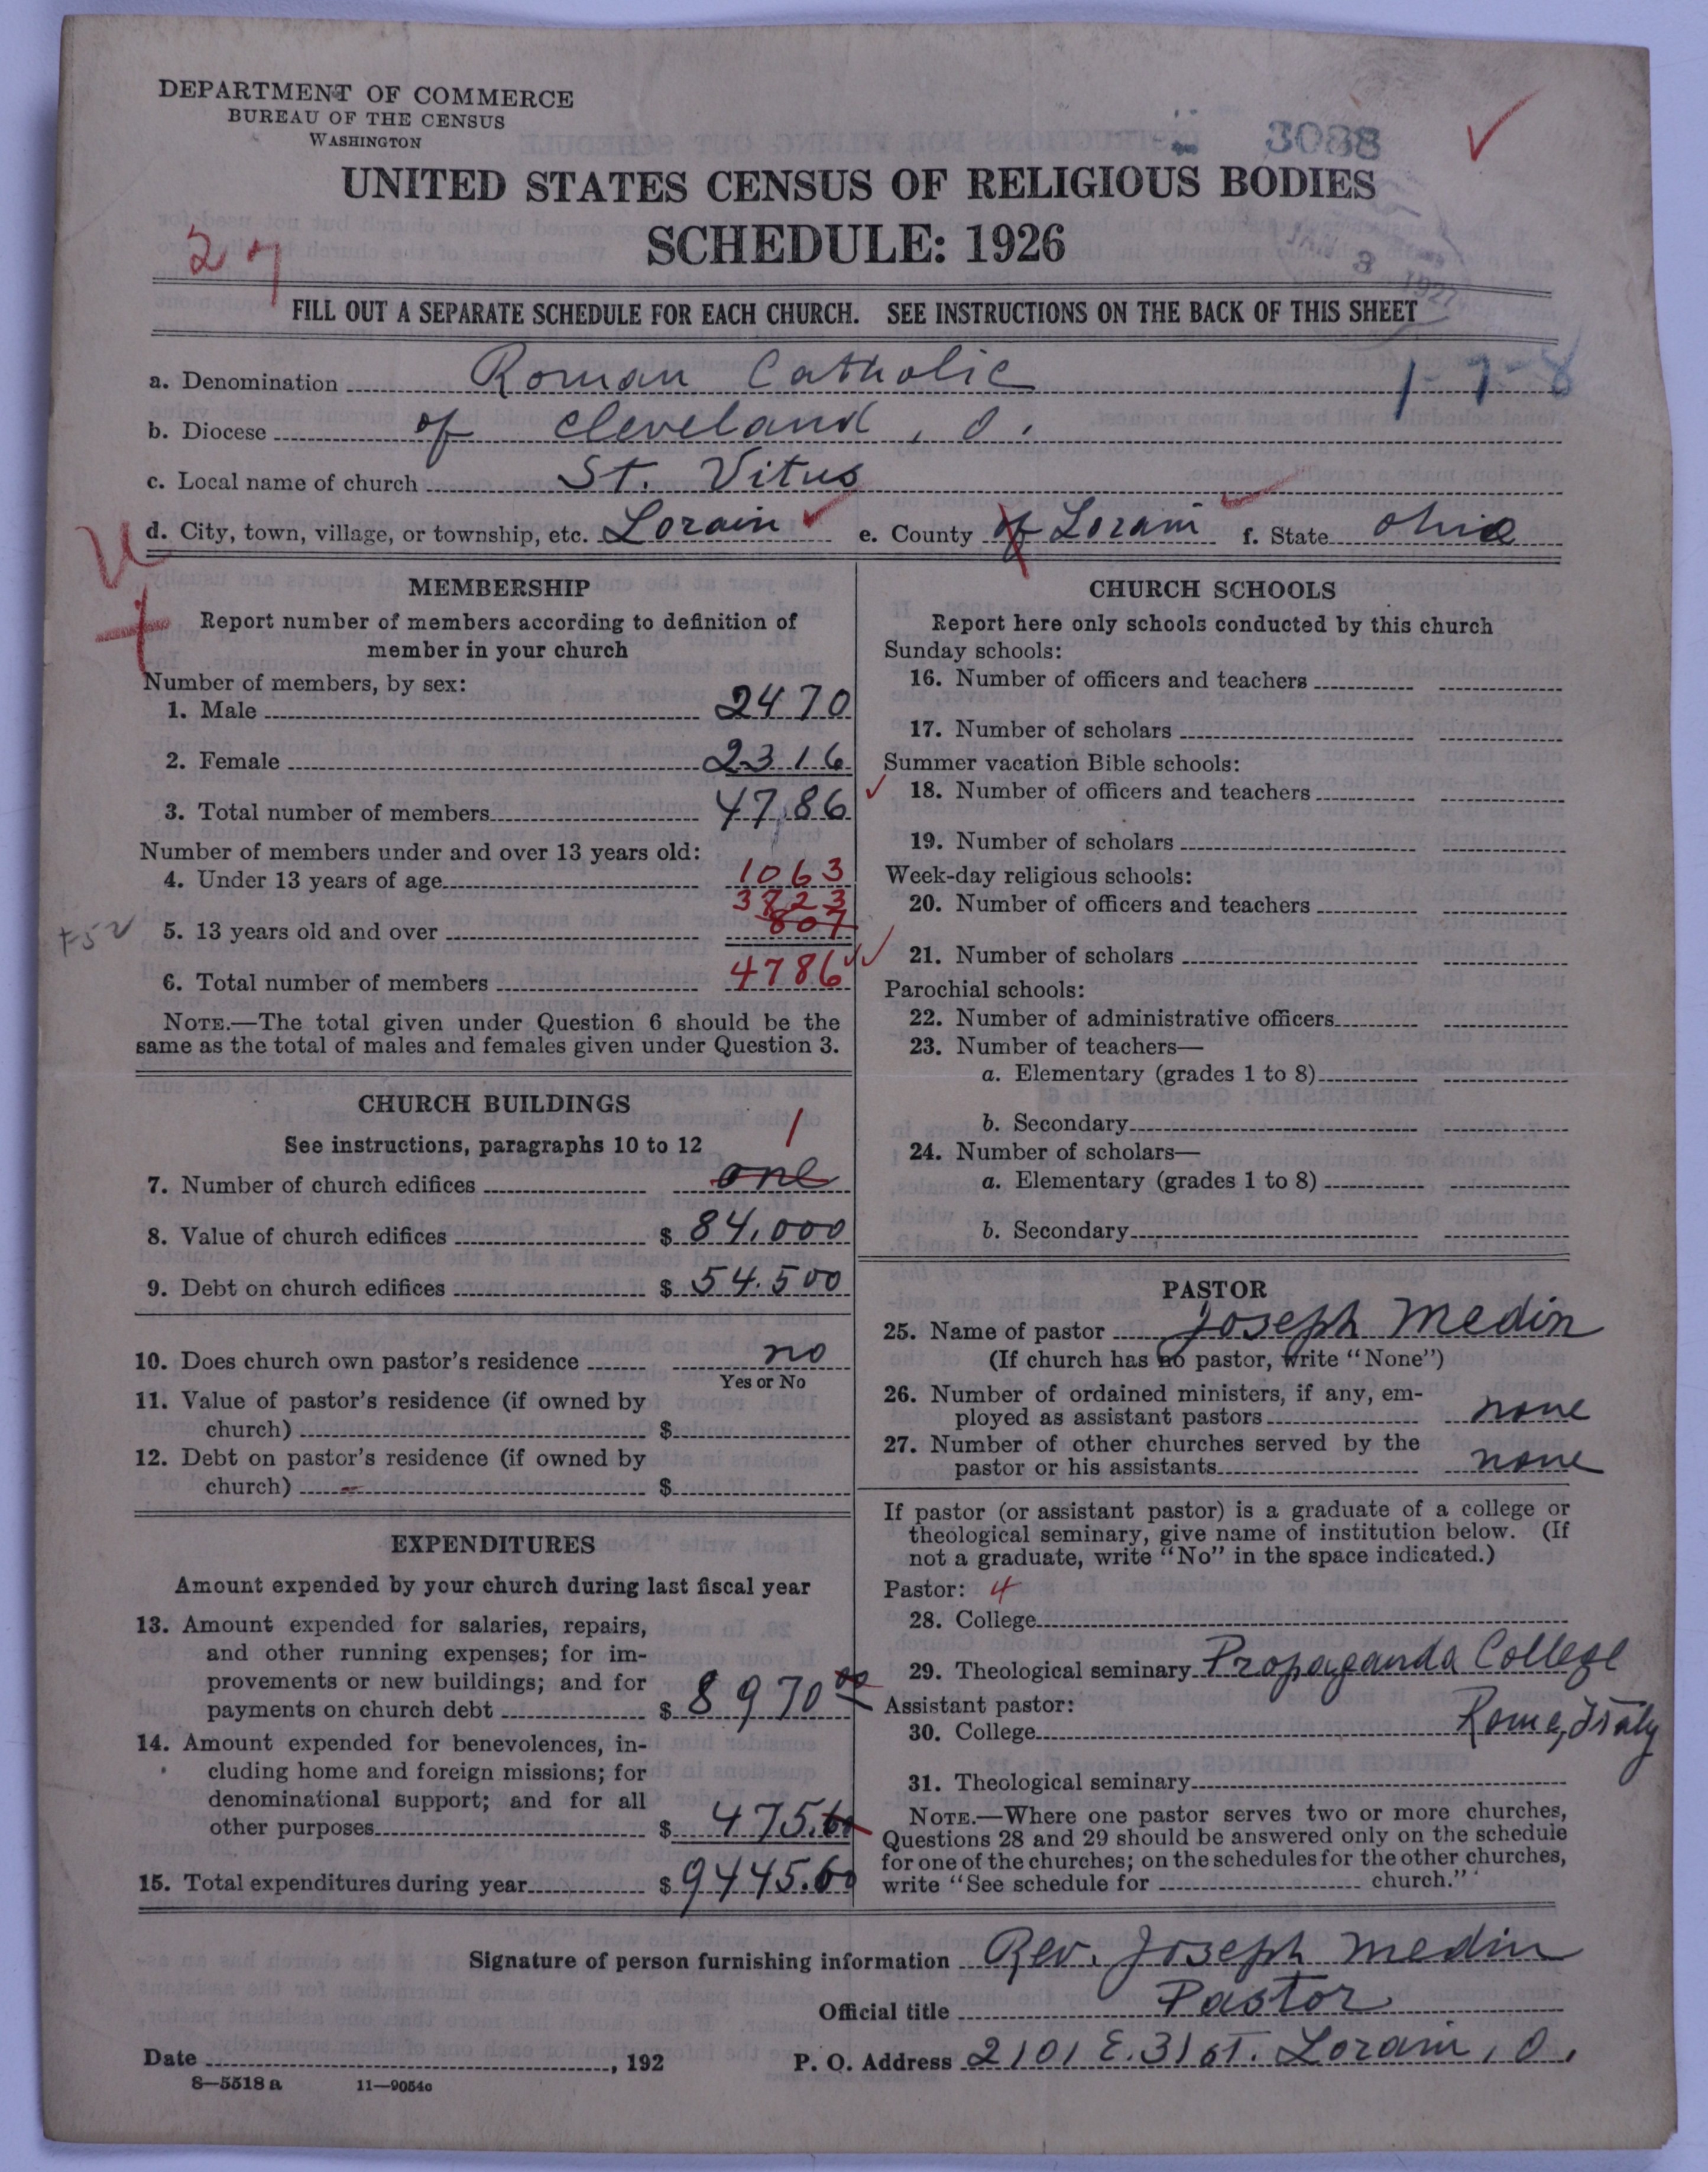 DEPARTMENT OF COMMERCE
BUREAU OF THE CENSUS
WASHINGTON
3088
UNITED STATES CENSUS OF RELIGIOUS BODIES
SCHEDULE: 1926
27
JAN 3 1927
FILL OUT A SEPARATE SCHEDULE FOR EACH CHURCH. SEE INSTRUCTIONS ON THE BACK OF THIS SHEET
a. Denomination Roman Catholic 1-7-8
b. Diocese of Cleveland, O.
c. Local name of church St. Vitus
d. City, town, village, or township, etc. Lorain e. County of Lorain f. State Ohio
MEMBERSHIP
Report number of members according to definition of
member in your church
Number of members, by sex:
1. Male 2470
2. Female 2316
3. Total number of members 4786
Number of members under and over 13 years old:
4. Under 13 years of age 1063
3723
807
5. 13 years old and over
6. Total number of members 4786
NOTE.—The total given under Question 6 should be the
same as the total of males and females given under Question 3.
CHURCH BUILDINGS
See instructions, paragraphs 10 to 12
1
7. Number of church edifices one
8. Value of church edifices $ 84,000
9. Debt on church edifices $ 54.500
10. Does church own pastor's residence no
Yes or No
11. Value of pastor's residence (if owned by
church) $
12. Debt on pastor's residence (if owned by
church) $
EXPENDITURES
Amount expended by your church during last fiscal year
13. Amount expended for salaries, repairs,
and other running expenses; for im-
provements or new buildings; and for
payments on church debt $ 8970 00
14. Amount expended for benevolences, in-
cluding home and foreign missions; for
denominational support; and for all
other purposes $ 475.60
15. Total expenditures during year $ 9445.60
CHURCH SCHOOLS
Report here only schools conducted by this church
Sunday schools:
16. Number of officers and teachers
17. Number of scholars
Summer vacation Bible schools:
18. Number of officers and teachers
19. Number of scholars
Week-day religious schools:
20. Number of officers and teachers
21. Number of scholars
Parochial schools:
22. Number of administrative officers
23. Number of teachers—
a. Elementary (grades 1 to 8)
b. Secondary
24. Number of scholars—
a. Elementary (grades 1 to 8)
b. Secondary
PASTOR
25. Name of pastor Joseph Medin
(If church has no pastor, write "None")
26. Number of ordained ministers, if any, em-
ployed as assistant pastors none
27. Number of other churches served by the
pastor or his assistants none
If pastor (or assistant pastor) is a graduate of a college or
theological seminary, give name of institution below. (If
not a graduate, write "No" in the space indicated.)
Pastor: 4
28. College
29. Theological seminary Propaganda College
Assistant pastor:
30. College Rome, Italy
31. Theological seminary
NOTE.—Where one pastor serves two or more churches,
Questions 28 and 29 should be answered only on the schedule
for one of the churches; on the schedules for the other churches,
write "See schedule for church."
Signature of person furnishing information Rev. Joseph Medin
Official title Pastor
Date , 192 P. O. Address 2101 E. 31 St. Lorain, O.
8—5518 a 11—9054c